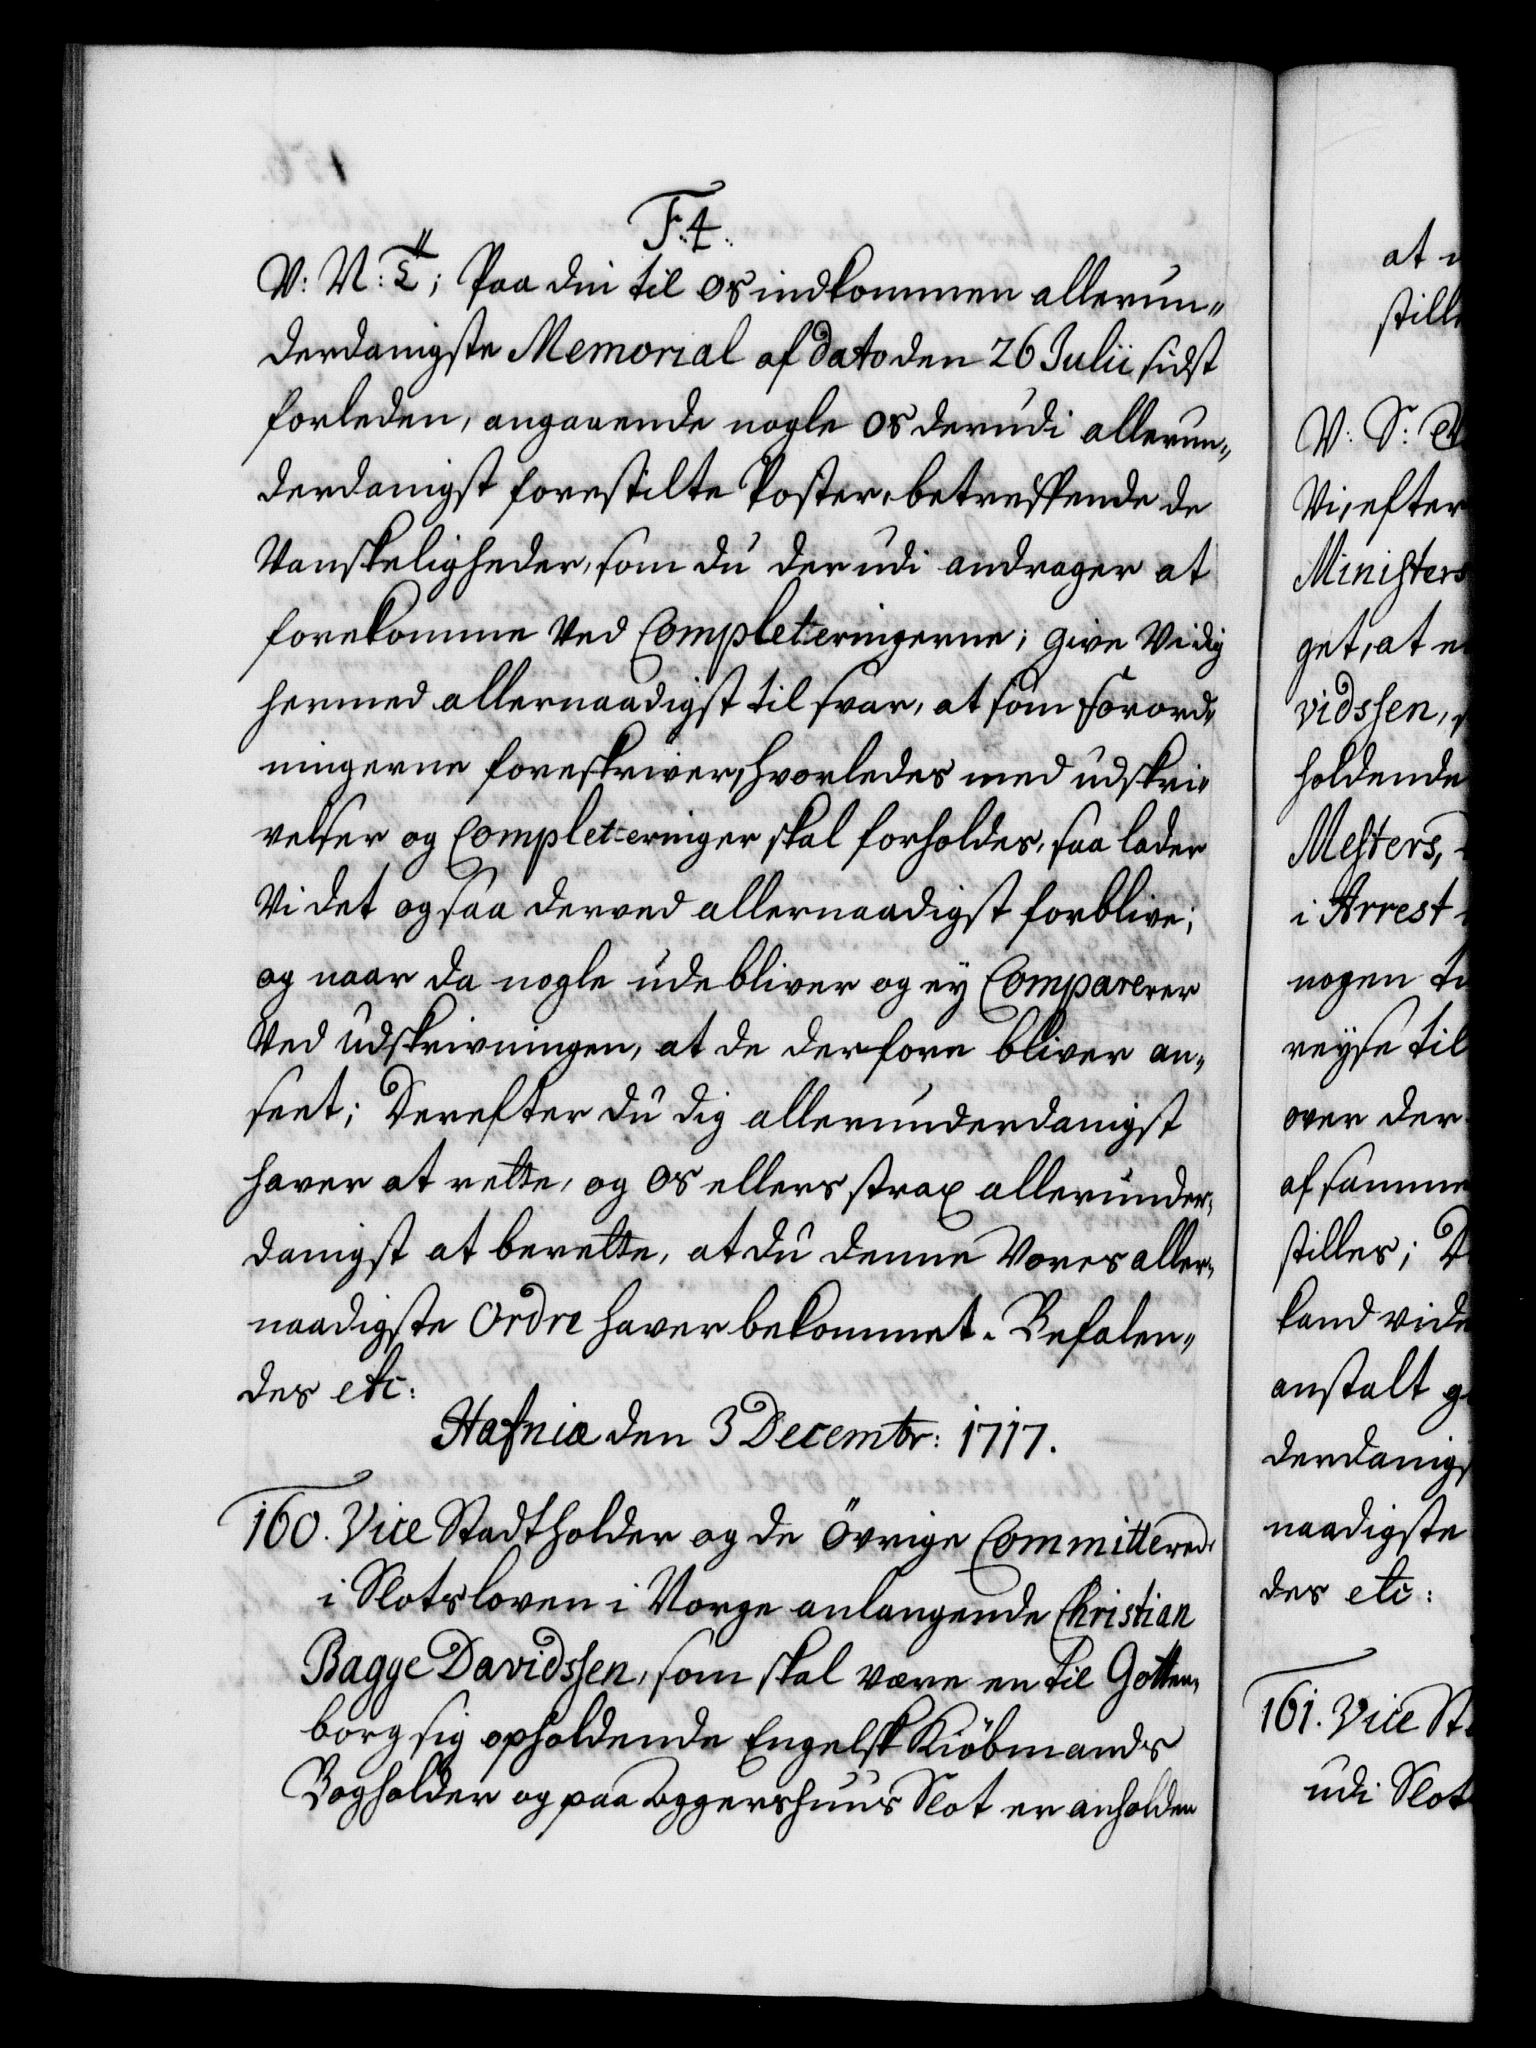 F. 4.
V: N: T; Paa din til os indkommen allerun-
derdanigste Memorial af dato den 26 Julii sidst
forleden, angaaende nogle os derudi allerun-
derdanigst forestilte Poster, betreffende de
Vanskeligheder, som du der udi andrager at
forekomme ved Completeringerne; give Vi dig
hermed allernaadigst til svar, at som Forord-
ningerne foreskriver, hvorledes med udskri-
velser og Completeringer skal forholdes, saa lader
Vi det og saa derved allernaadigst forblive;
og naar da nogle udebliver og ey Comparerer
Ved udskrivningen, at de derfore bliver an-
seet; Derefter du dig allerunderdanigst
haver at rette, og os ellers strax allerunder-
danigst at berette, at du denne Vores aller-
naadigste Ordre haver bekommet. Befalen-
des etc:
Hafniæ den 3 Decembr: 1717.
160. Vice Stadtholder og de Övrige Committered.
i Slotsloven i Norge anlangende Christian
Bagge Davidssen, som skal være en til Gotten-
borg sig opholdende Engelsk Kiöbmands
Bogholder og paa Aggershuus Slot er anholden
at
stille
V: S:
Vi, efter
Ministers
get, at
vidssen,
holdende
Mesters,
i Arrest
nogen
reyse til
over der
af samme
stilles;
kand vide
anstalt
derdanigs
naadigste
des etc:
161. Vice St
udi Slot